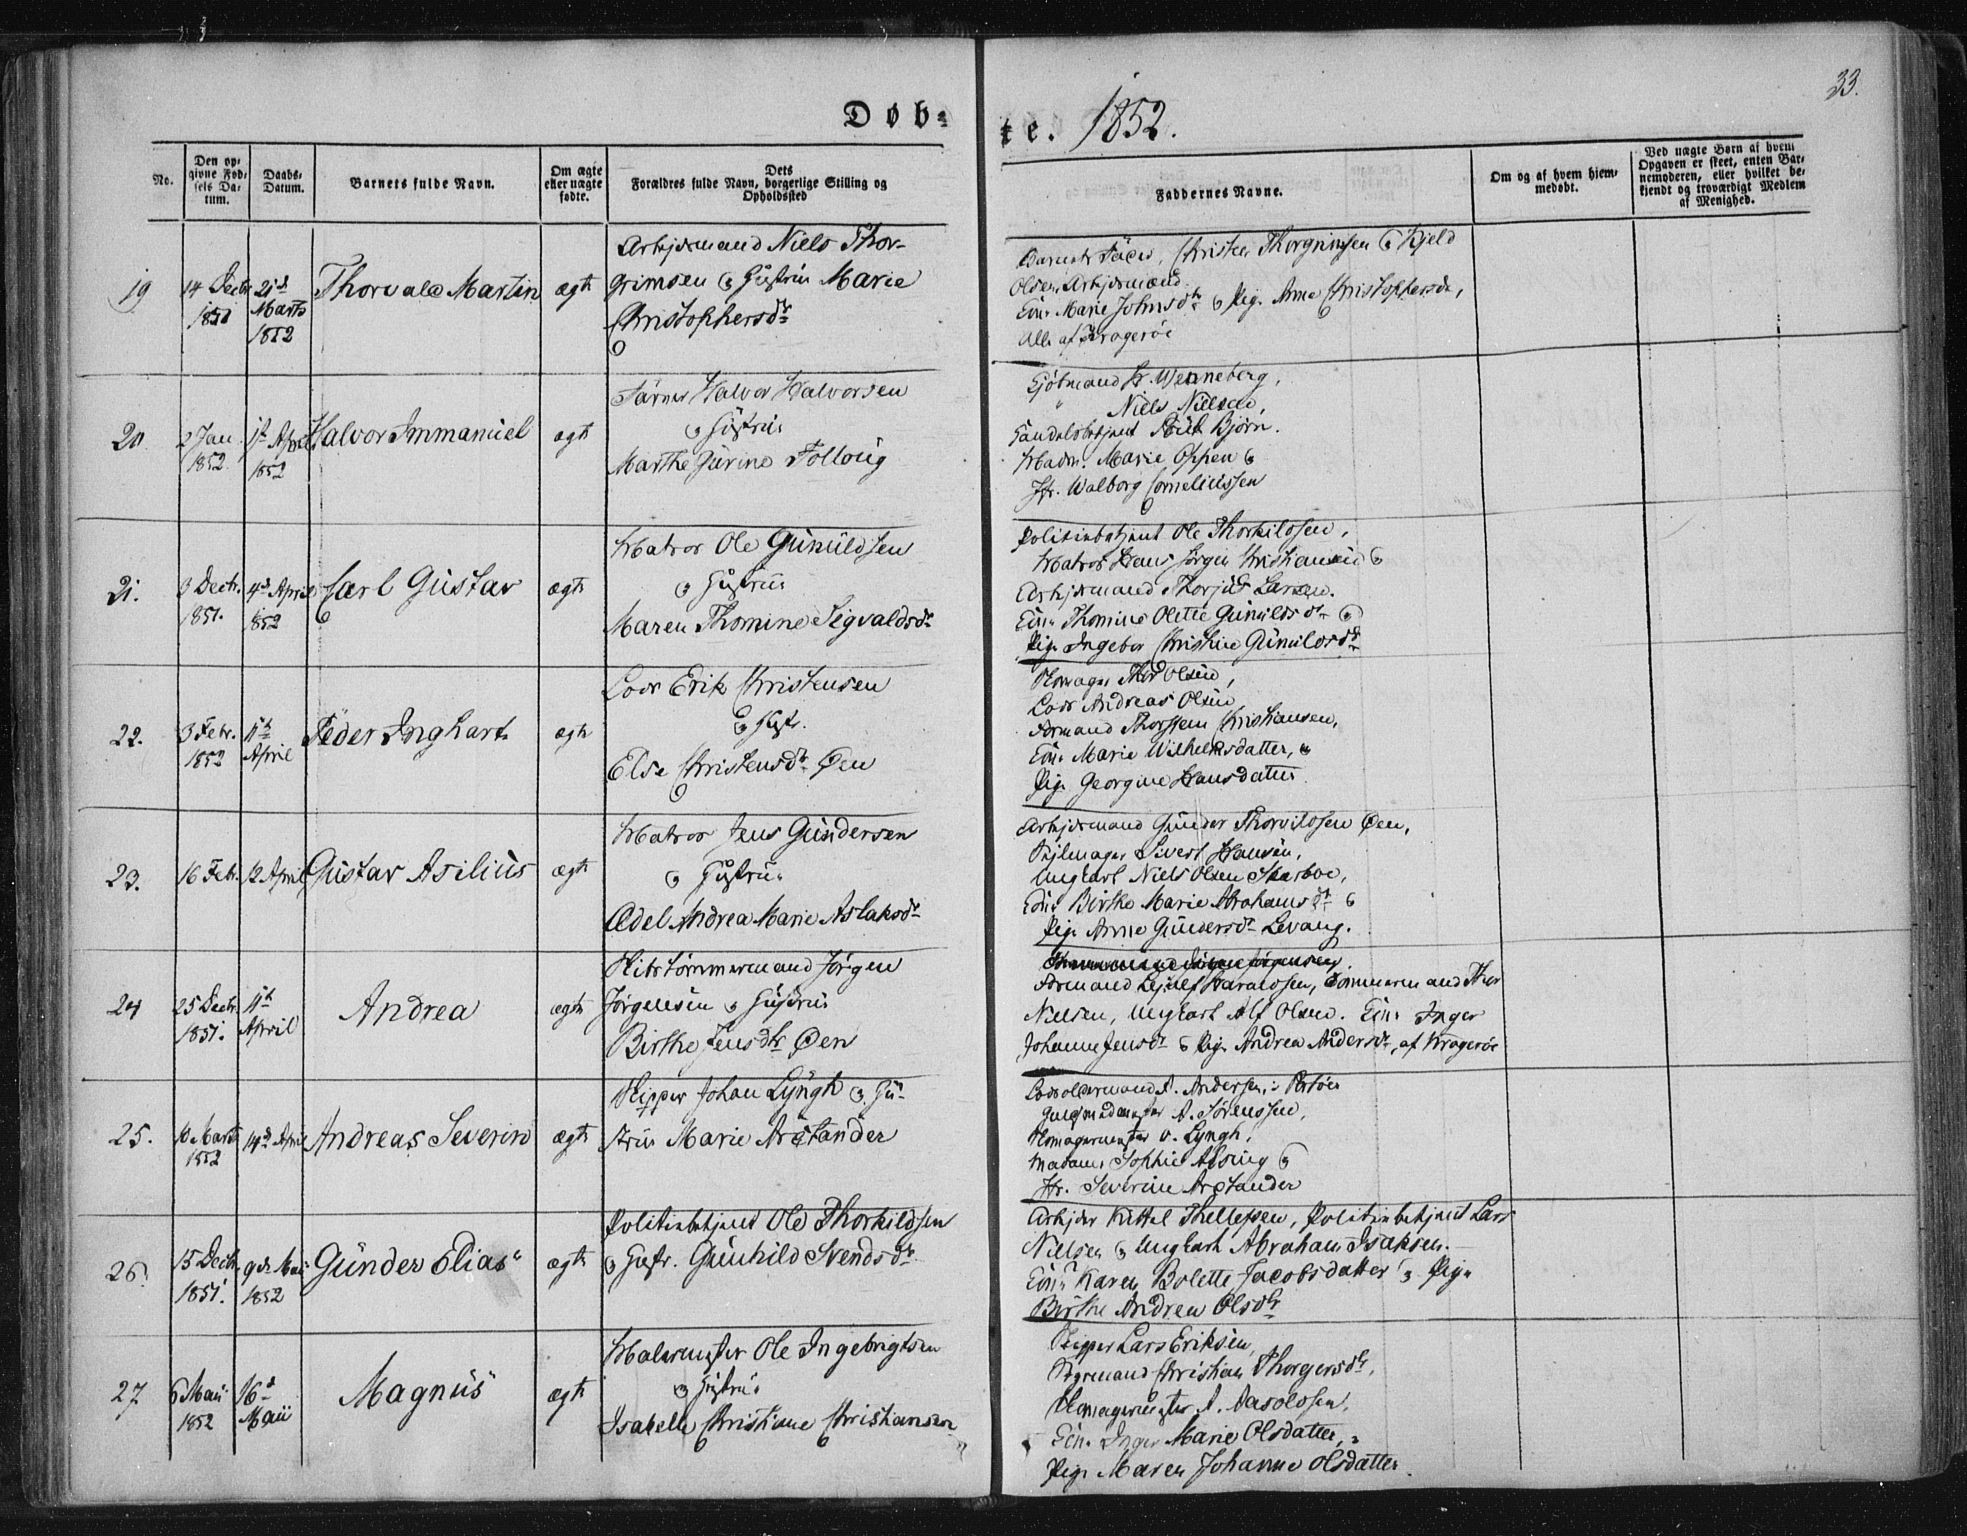 33.
Døb-
te. 1852.
No.
Den op-
givne Fød-
sels Da-
tum.
Daabs-
Datum.
Barnets fulde Navn.
Om ægte
eller uægte
fødte.
Dets
Forældres fulde Navn, borgerlige Stilling og
Opholdssted
Faddernes Navne.
Om og af hvem hjem-
medøbt.
Ved uægte Børn af hvem
Opgaven er skeet, enten Bar-
nemoderen, eller hvilket be-
kjendt og troværdigt Medlem
af Menighed.
19
14 Decbr
1851
21de
Marts
1852
Thorvald Martin
ægte
Arbejdsmand Niels Thor-
grimsen & Hustrue Marie
Christophersdr
Barnets Fader, Christen Thorgrimsen & Kjeld
Olsen, Arbejdsmænd.
Marie Johnsdr & Pige Anne Christophersdr,
Alle af Kragerøe
20
2 Jan.
1852.
1ste April
1852
Halvor Immanuel
ægte
Farver Halvor Halvorsen
& Hustrue
Marthe Gurine Tolloug
Kjøbmand Wenneberg,
" Niels Nielsen,
Handelsbetjent Bjørn.
Madm. Marie Oppen &
Jfr. Walborg Corneliussen
21.
3 Decbr.
1851.
4de April
1852
Carl Gustav
ægte
Matros Ole Gunuldsen
& Hustrue
Maren Thomine Sigvaldsdr
Politiebetjent Ole Thorkildsen,
Matros Hans Jørgen Christiansen &
Arbejdsmand Larsen.
Thomine Olette Gunuldsdr &
Pige Ingebor Christine Gunuldsdr
22.
3 Febr.
1852
11te
April
Peder Inghart
ægte
Lods Erik Christensen
& Hustr.
Else Christensdr Øen
Thor Olsen,
Lods Andreas Olsen
Formand Christiansen,
Marie Wilhelmsdatter, &
Pige Georgine Hansdatter.
23.
16 Febr.
12 April
Gustav Asilius
ægte
Matros Jens Gundersen
& Hustrue
Ædel Andrea Marie Aslaksdr
Arbejdsmand Gunder Øen,
Sejlmager Sivert Hansen,
Ungkarl Niels Olsen Skarboe,
Birthe Marie Abrahamsdr &
Pige Anne Gundersdr Levang.
24
25 Decbr
1851.
11te
April
Andrea
ægte
Skibstømmermand Jørgen
Jørgensen & Hustrue
Birthe Jensdtr Øen
Formand Haraldsen, Tømmermand Thor
Nielsen, Ungkarl Alf Olsen. Inger
Johanne Jensdr & Pige Andrea Andersdr, af Kragerøe
25.
10 Marts
1852
14de April
Andreas Severin
ægte
Skipper Johan Lyngh & Hu-
strue Marie Arctander
Lodsoldermand A. Andersen, Portøer
Guldsmedmester A. Sørenssen,
Lyngh,
Madame Sophie Alsing &
Jfr. Severine Arctander
26.
15 Decbr
1851.
9de Maii
1852
Gunder Elias
ægte
Politiebetjent Ole Thorkildsen
& Hustr. Gunhild Svendsdr
Arbejder Kittel Thellefsen, Politiebetjent Lars
Nielsen & Ungkarl Abraham Isaksen.
Karen Bolette Jacobsdatter & Pige
Birthe Andrea Olsdtr
27.
6 Maii
1852
16de
Maii
Magnus
ægte
Malermester Ole Ingebrigtsen
& Hustrue
Isabelle Christiane Christiansen
Skipper Lars Eriksen,
Styrmand Christian
A. Aasoldsen,
Inger Marie Olsdatter, &
Pige Maren Johanne Olsdatter.